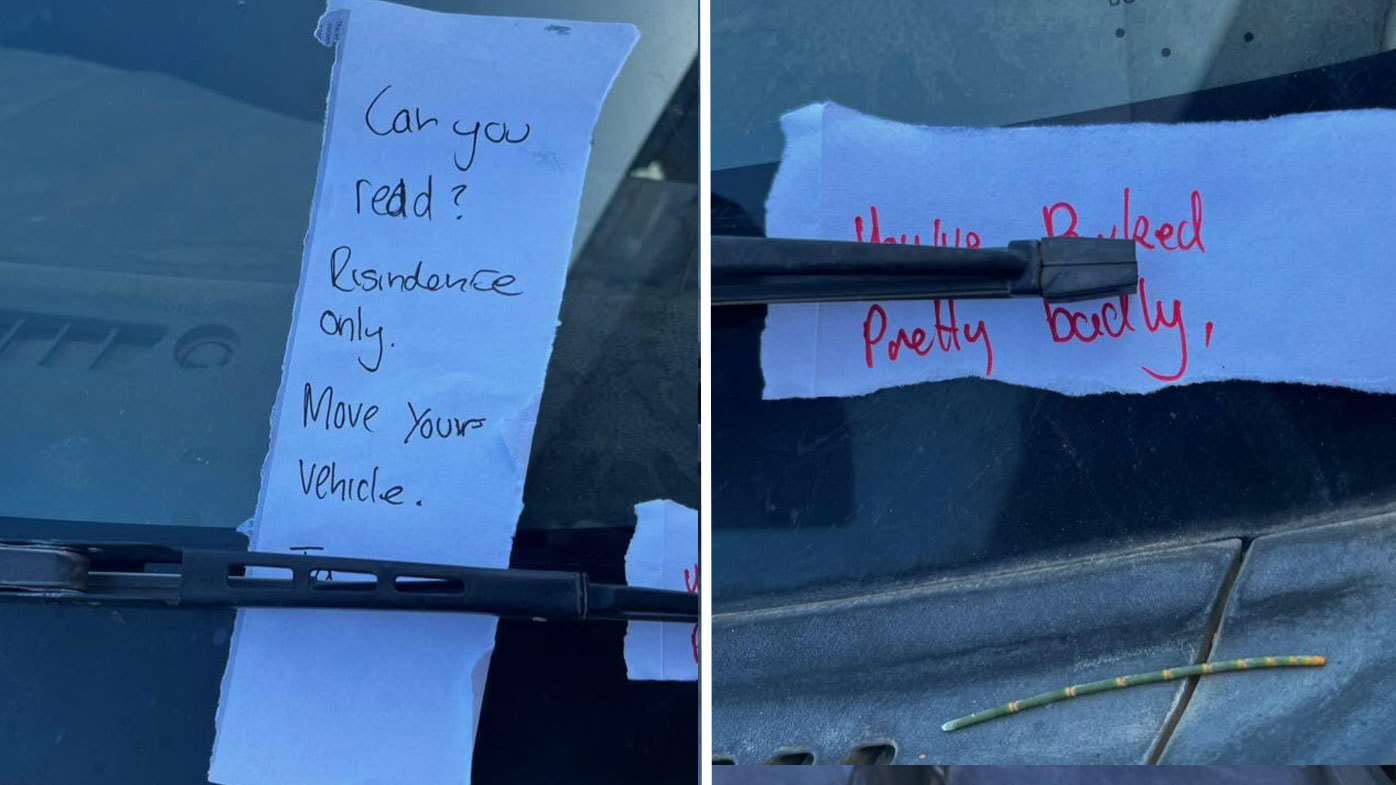 Can you
read?
Risindence
only.
Move Your
vehicle.
You've Parked
Pretty badly,